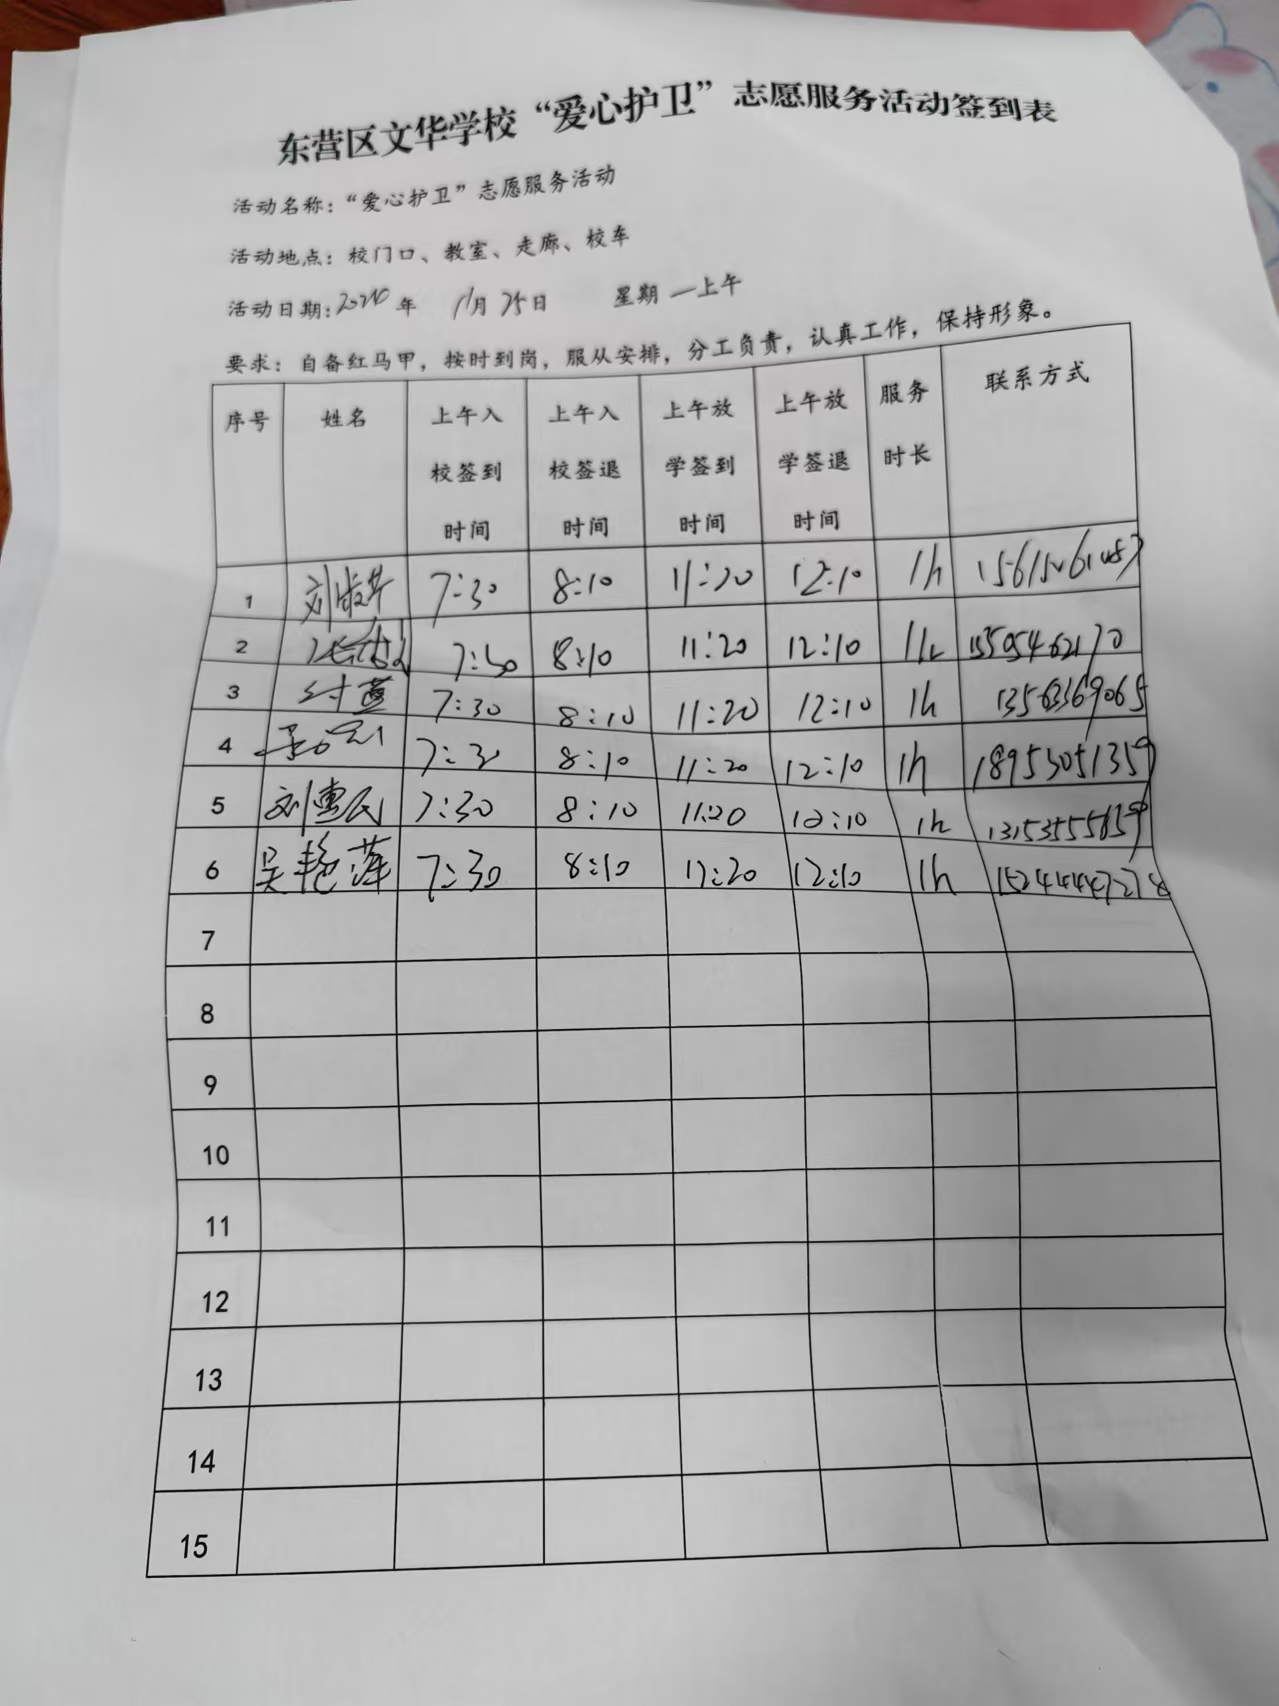 东营区文华学校“爱心护卫”志愿服务活动签到表
活动名称：“爱心护卫”志愿服务活动
活动地点：校门口、教室、走廊、校车
活动日期：年 11月25日 星期一上午
要求：自备红马甲，按时到岗，服从安排，分工负责，认真工作，保持形象。
序号 姓名 上午入校签到时间 上午入校签退时间 上午放学签到时间 上午放学签退时间 服务时长 联系方式
1 刘 7:30 8:10 11:20 12:10 1h
2 7:30 8:10 11:20 12:10 1h 15505462170
3 付萱 7:30 8:10 11:20 12:10 1h 13563369065
4 7:30 8:10 11:20 12:10 1h 18953051359
5 刘惠民 7:30 8:10 11:20 12:10 1h
6 吴艳萍 7:30 8:10 11:20 12:10 1h 15244447278
7
8
9
10
11
12
13
14
15